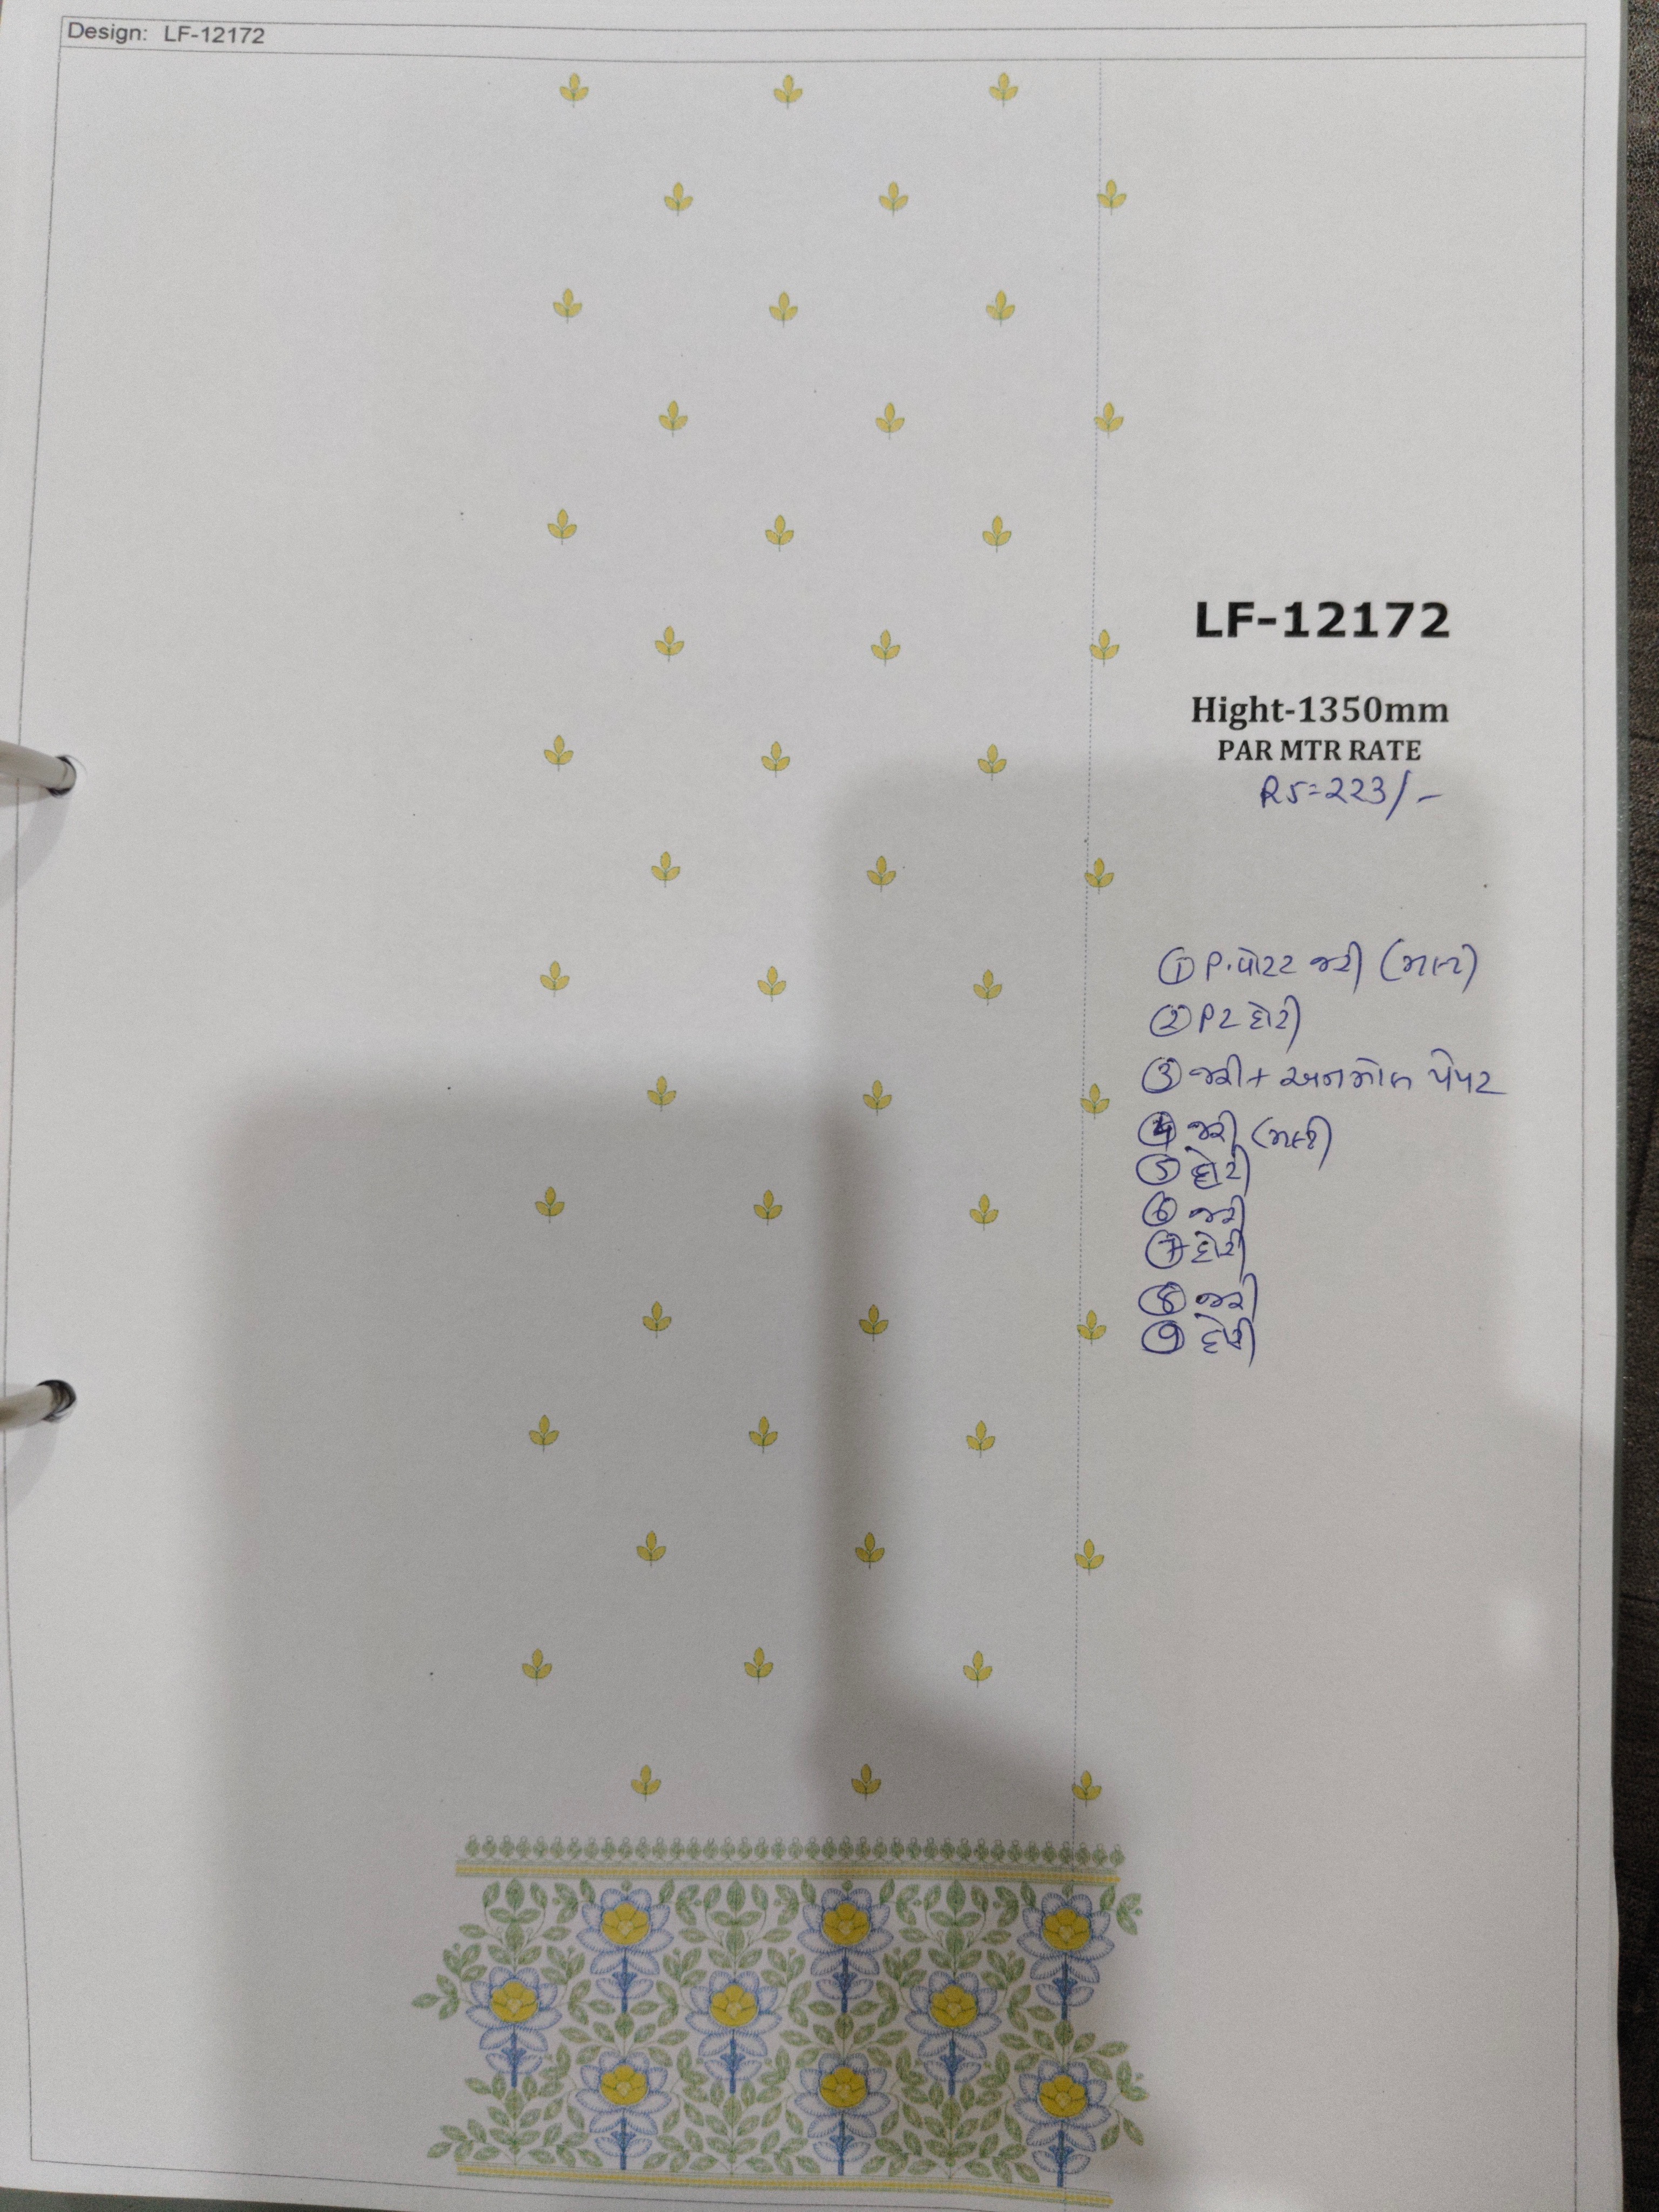 Design: LF-12172
LF-12172
Hight-1350mm
PAR MTR RATE
RS=223/-
① P. જરી
② P2 દોરી
③ જરી + અનમોલ પેપર
④ જરી
⑤ દોરી
⑥ જરી
⑦ દોરી
⑧ જરી
⑨ દોરી